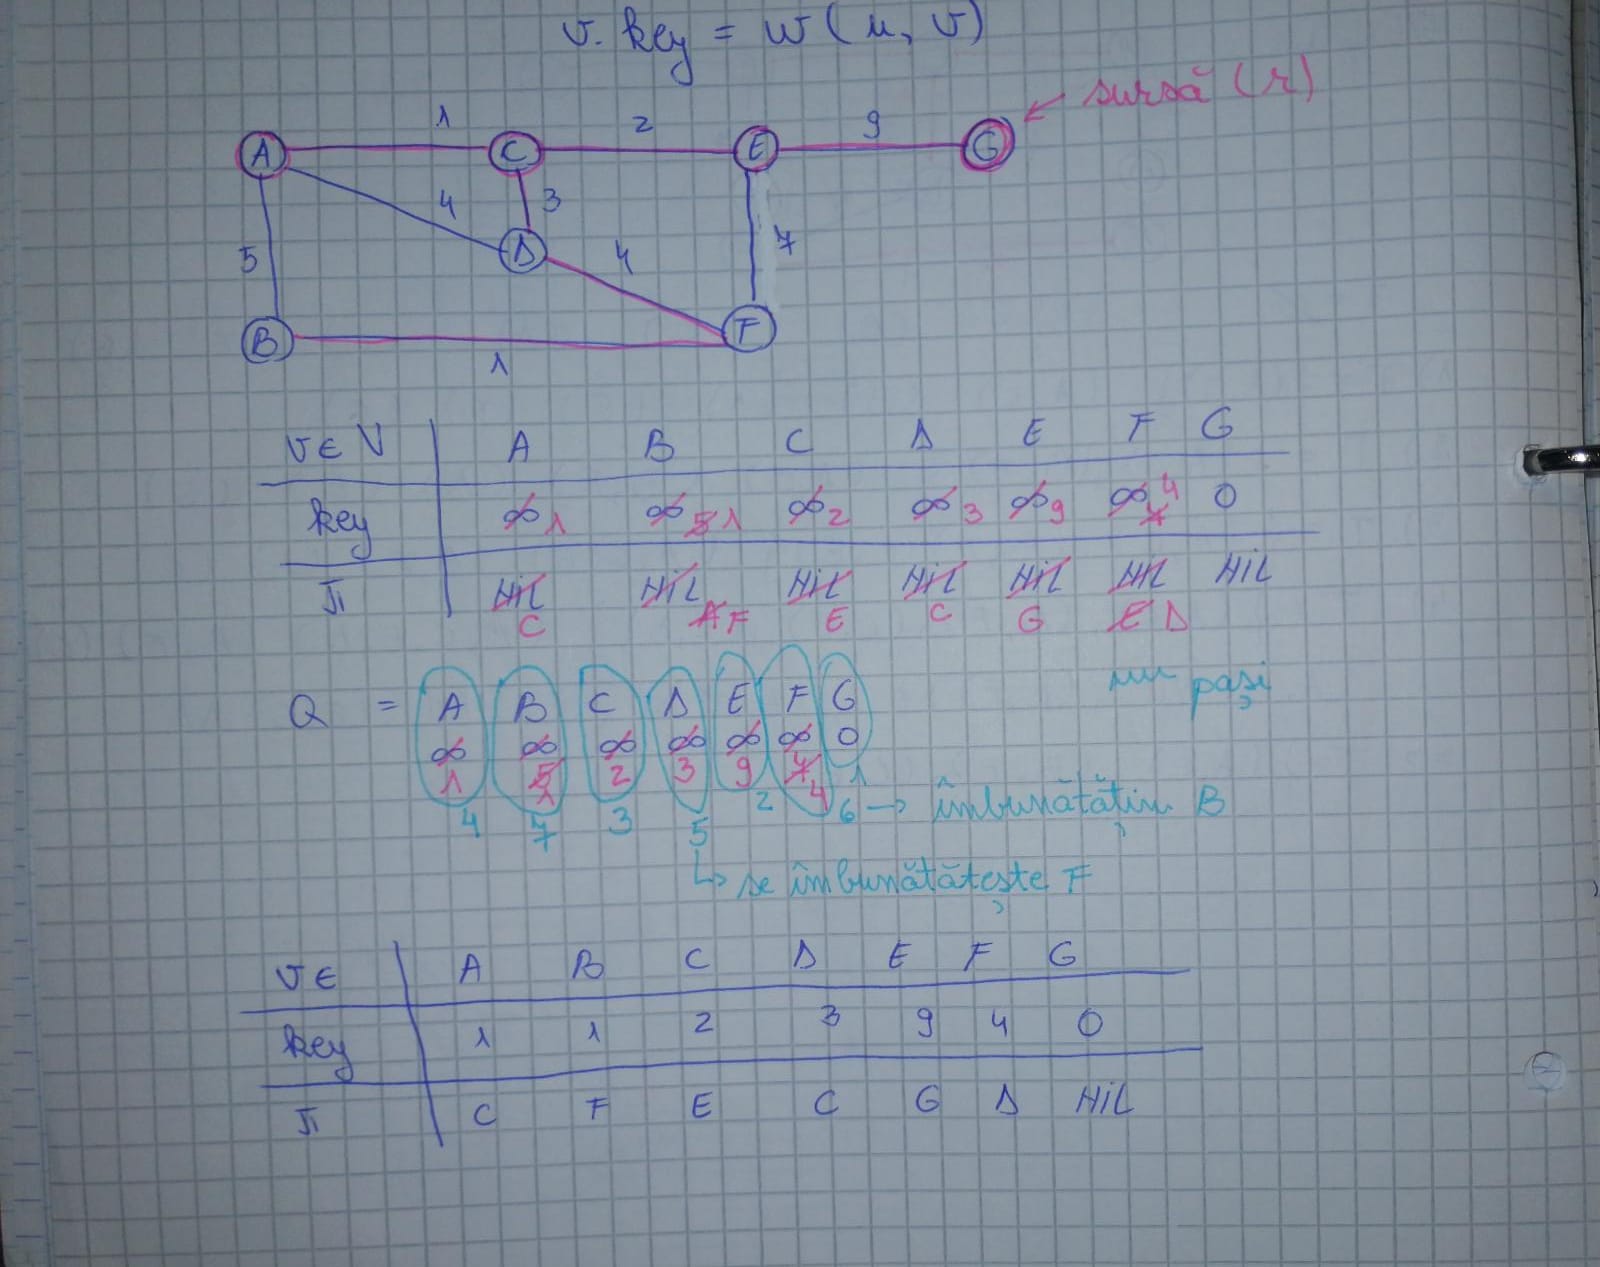 v. key = w(u, v)
sursă (r)
1 2 9
A C E G
4 3
5 D 4 7
B F
1
v ∈ V A B C D E F G
key ∞ 1 ∞ 5 1 ∞ 2 ∞ 3 ∞ 9 ∞ 7 4 0
π NiL NiL NiL NiL NiL NiL NiL
C A F E C G E D
nr pași
Q = A B C D E F G
∞ ∞ ∞ ∞ ∞ ∞ 0
1 5 2 3 9 7 1
1 4
4 7 3 5 2 6 → îmbunătățim B
↳ se îmbunătățește F
v ∈ A B C D E F G
key 1 1 2 3 9 4 0
π C F E C G D NiL